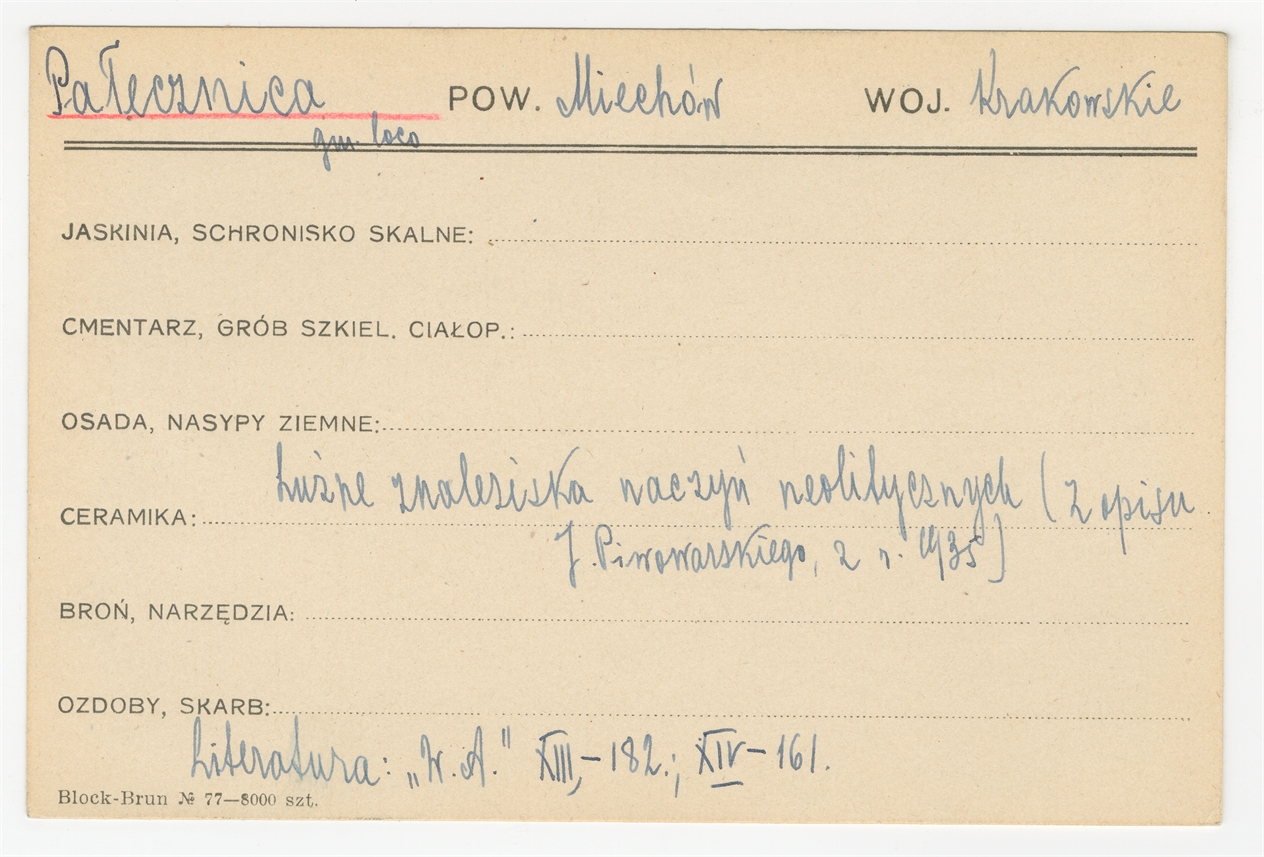 Pałecznica POW. Miechów WOJ. Krakowskie
gm. loco
JASKINIA, SCHRONISKO SKALNE:
CMENTARZ, GRÓB SZKIEL. CIAŁOP.:
OSADA, NASYPY ZIEMNE:
Luźne znaleziska naczyń neolitycznych (Z opisu
CERAMIKA:
J. Piwowarskiego, z r. 1935)
BROŃ, NARZĘDZIA:
OZDOBY, SKARB:
Literatura: „W.A." XIII,-182.; XIV-161.
Block-Brun № 77—8000 szt.